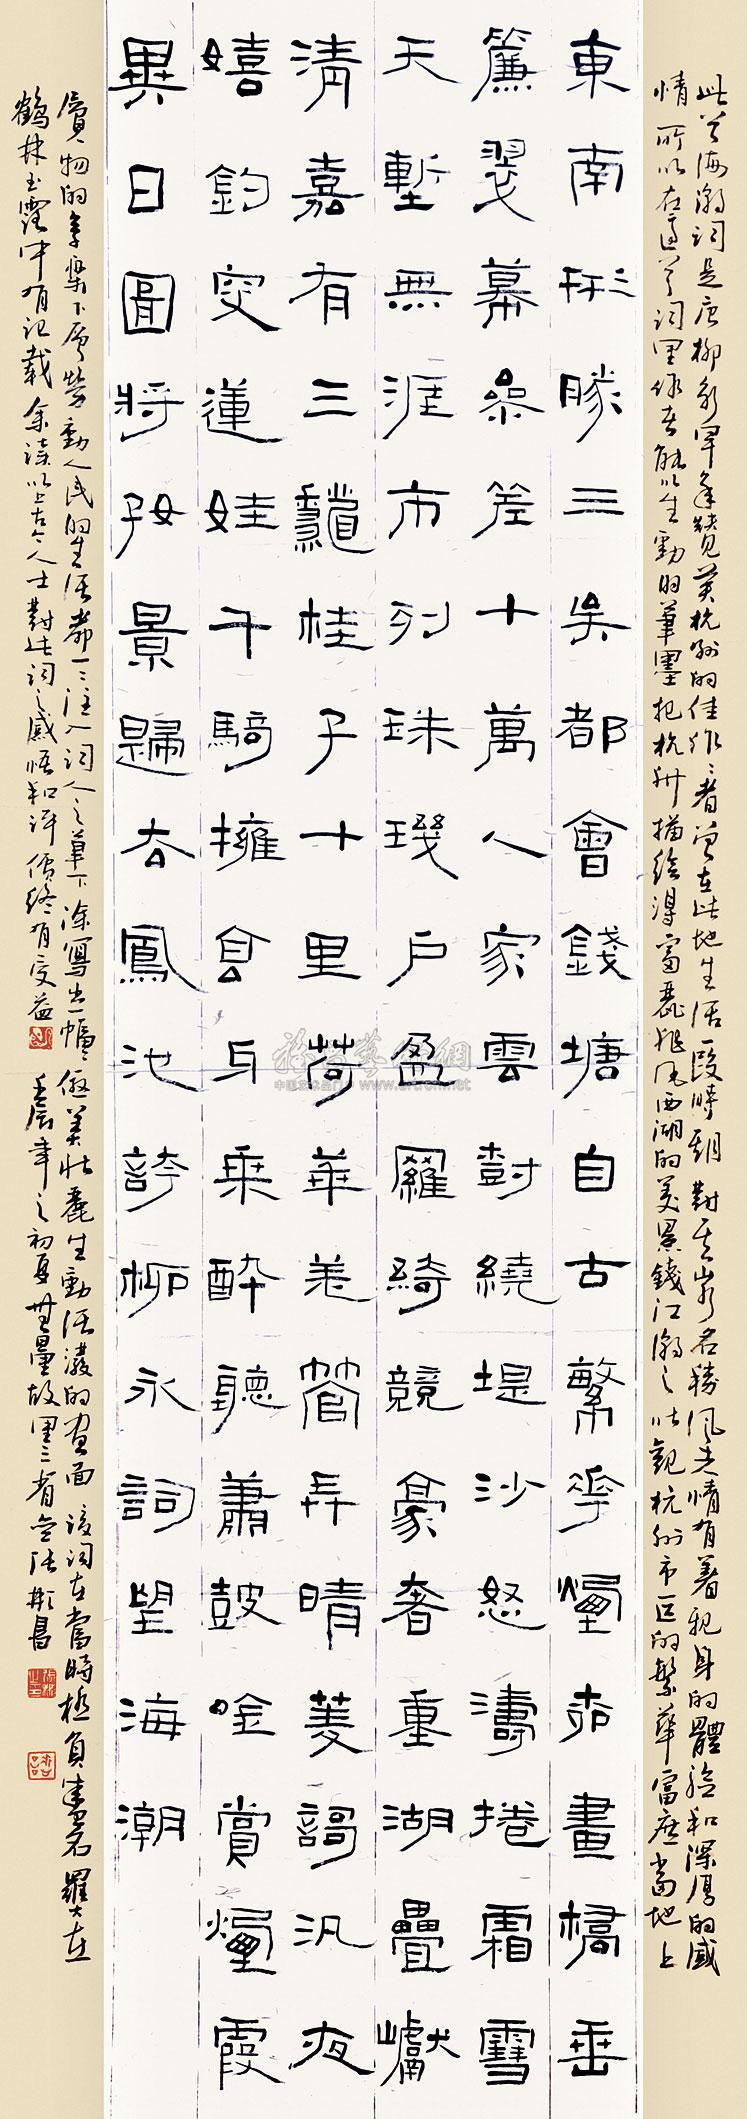 此首海潮詞是宋柳永早年贊美杭州的佳作作者曾在此地生活一段時期對其山水名勝風光情有着親身的體驗和深厚的感
情所以在這首詞里作者能以生動的筆墨把杭州描繪得富麗非凡西湖的美景錢江潮之壯觀杭州市區的繁華富庶當地上
東南形勝三吳都會錢塘自古繁華煙柳畫橋垂
簾翠幕參差十萬人家雲樹繞堤沙怒濤捲霜雪
天塹無涯市列珠璣戶盈羅綺競豪奢重湖疊巘
清嘉有三秋桂子十里荷華羌管弄晴菱謌汎夜
嬉釣叟蓮娃千騎擁高牙乘醉聽簫鼓吟賞煙霞
異日圖將好景歸去鳳池誇柳永詞望海潮
物的享樂下層勞動人民的生活都一一注入詞人之筆下塗寫出一幅幅優美壯麗生動活潑的畫面該詞在當時極負盛名羅大在
鶴林玉露中有記載余讀以上古今人士對此詞之感悟和評價終有受益 壬辰年之初夏無量故里三省堂張彬昌